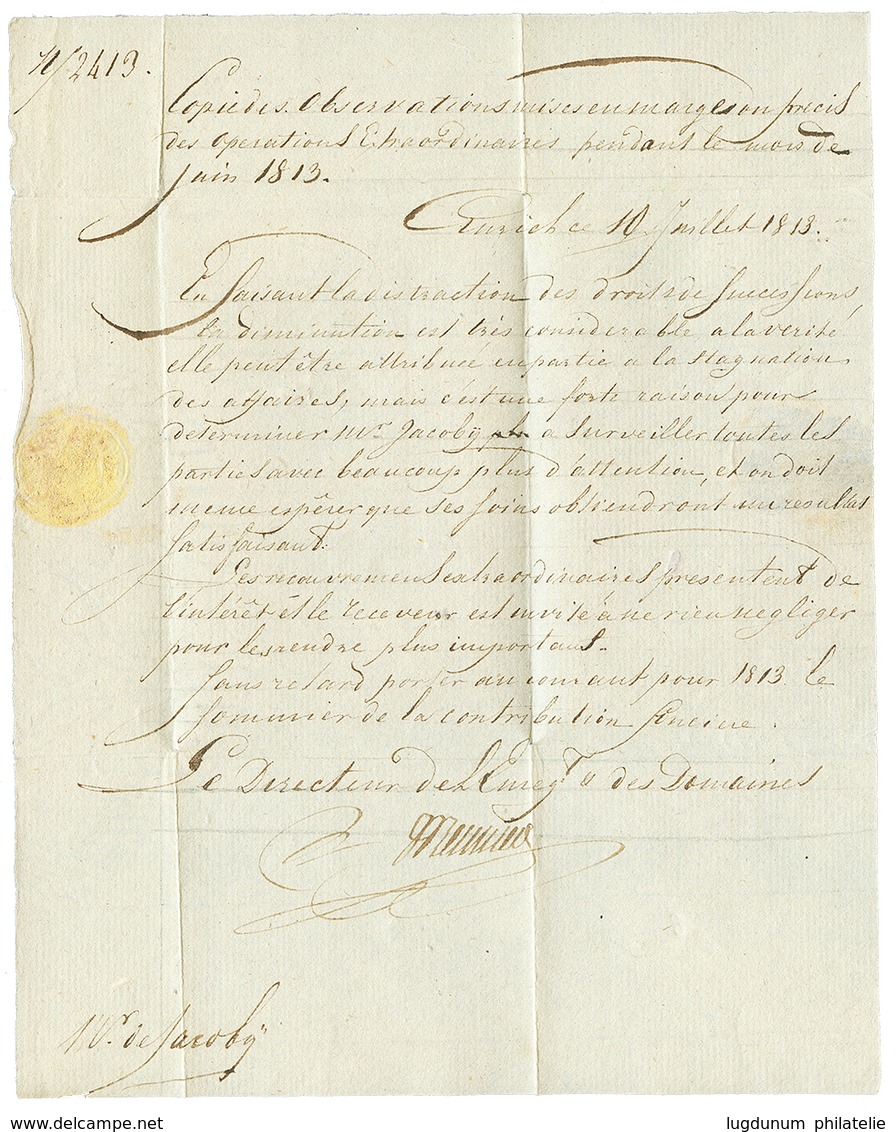 N/2413.
Copie des Observations mises en marge son précis
des operations Extraordinaires pendant le mois de
Juin 1813.
Aurich ce 10 Juillet 1813.
En faisant la distraction des droits de successions
la diminution est très considerable a la verité
elle peut être attribuée en partie a la stagnation
des affaires, mais c'est une forte raison pour
determiner Mr Jacobÿ a surveiller toutes les
parties avec beaucoup plus d'attention, et on doit
meme espérer que ses soins obtiendront un resultat
satisfaisant.
Les recouvremens extraordinaires presentent de
l'intérêt et le receveur est invité a ne rien negliger
pour les rendre plus importans.
Sans retard porter au courant pour 1813 le
sommier de la contribution fonciere.
Le Directeur de l'Enregt & des Domaines
Mr. de Jacobÿ
lugdunum philatelie